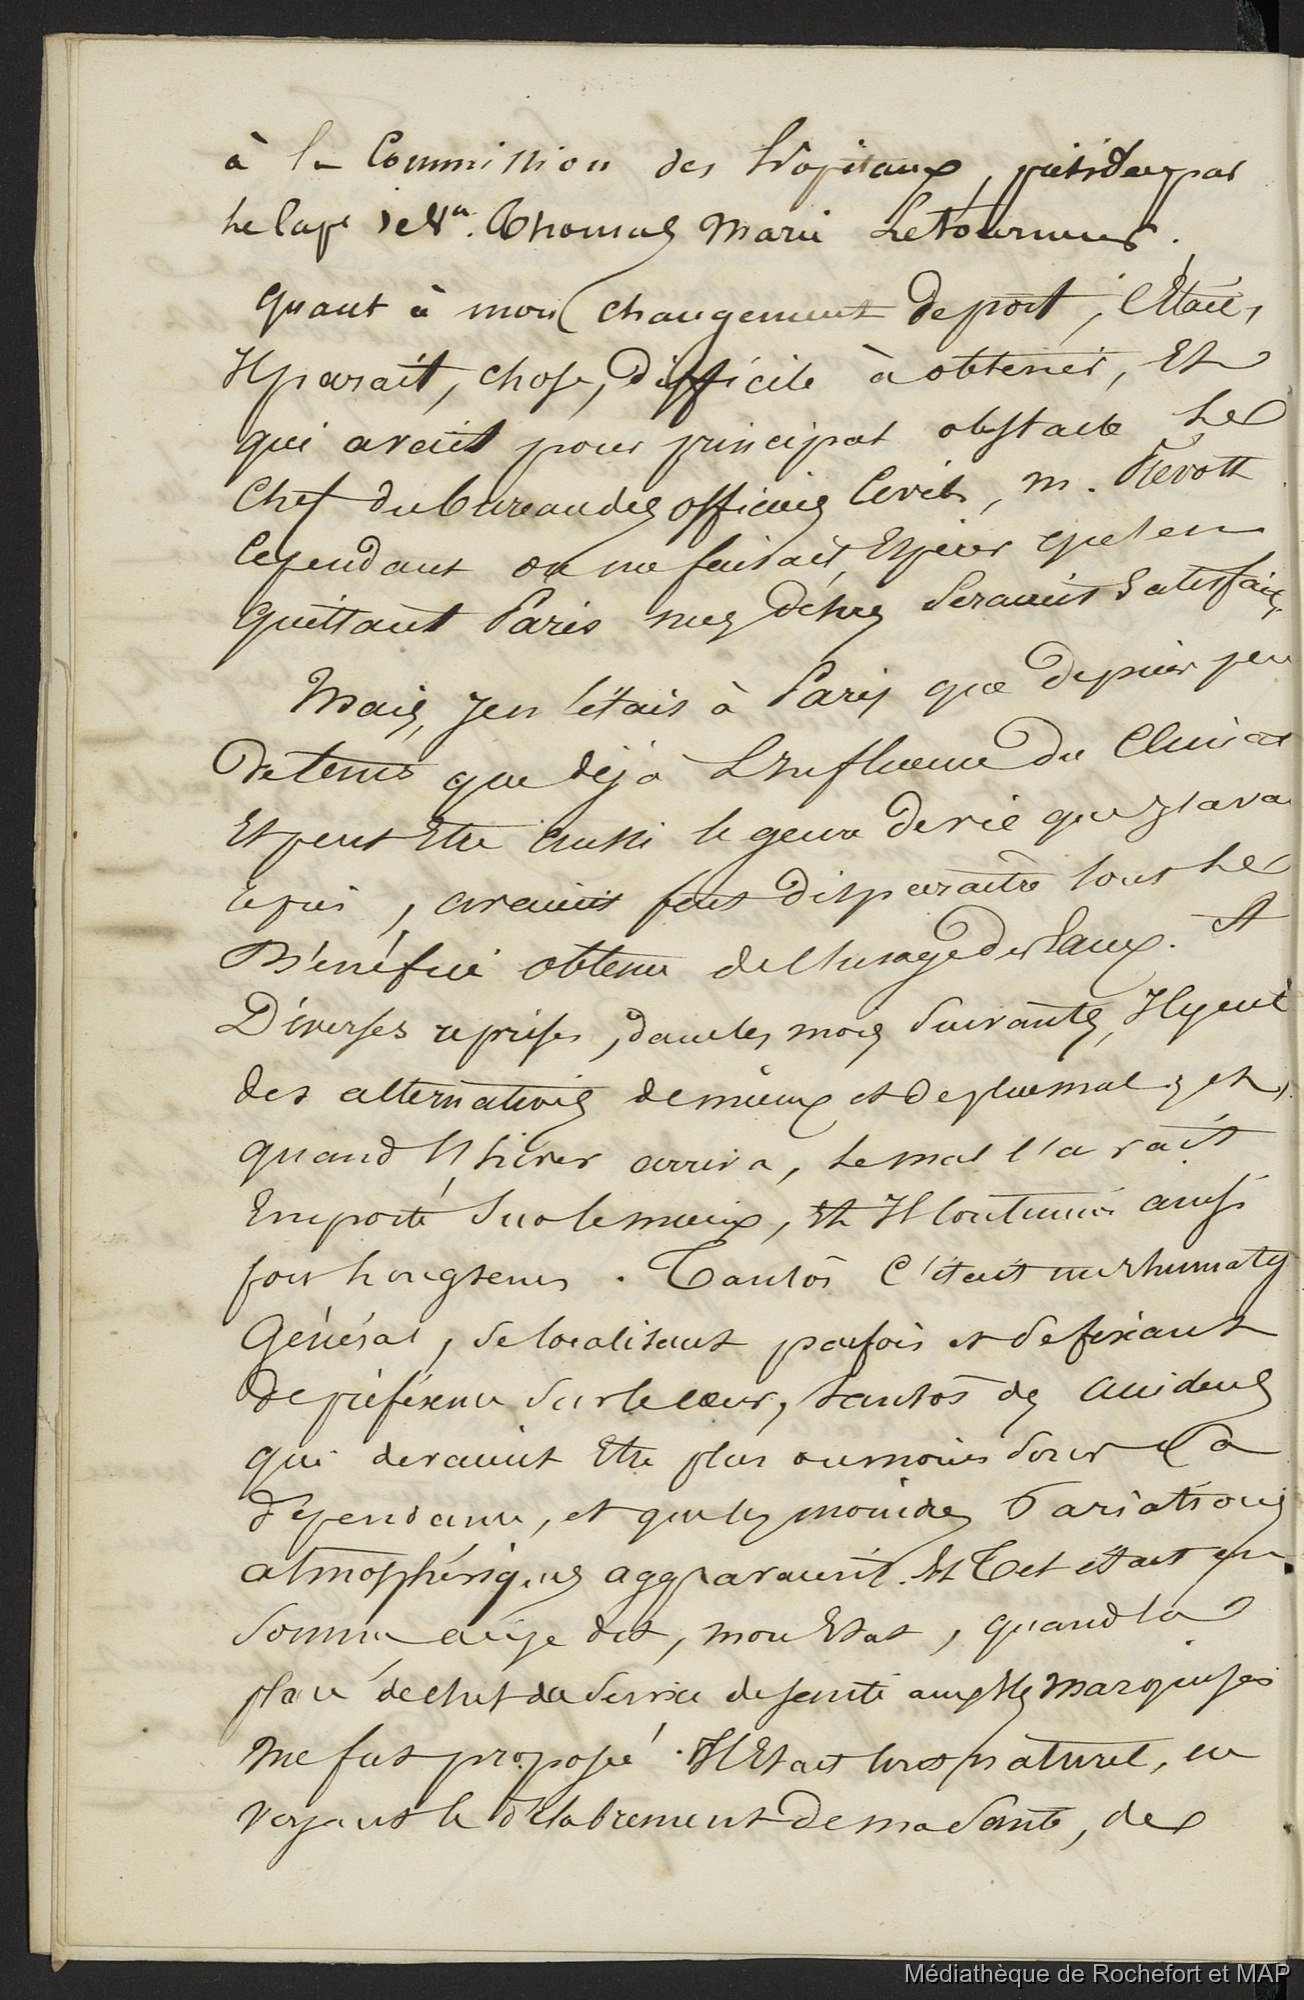 à la Commission des hôpitaux, présidée par
le Cap.e de V.au Thomas Marie Letourneur.
Quant à mon changement de port, c'était,
Il paraît, chose, difficile à obtenir, Et
qui avait pour principal obstacle Le
Chef du bureau des officiers Civils, M. Prévott
Cependant on me faisait Espérer qu'en
quittant Paris mes désirs seraient Satisfaits.
Mais, je n'étais à Paris que depuis peu
de tems que déjà L'influence du Climat
Et peut Etre aussi le genre de vie que j'ava
repris, avaient fait disparaître tout Le
Bénéfice obtenu de l'usage des Eaux. A
Diverses reprises, dans les mois Suivants, Il y eut
des alternatives de mieux et de plus mal, et,
quand l'hiver arriva, le mal l'avait
Emporté Sur le mieux, Et Il continua ainsi
fort longtems. Tantôt C'était un rhumats
Général, se localisant parfois et se fixant
de préférence Sur le coeur, tantôt des accidents
qui devaient Etre plus ou moins Sous Sa
dépendance, et que les moindres Variations
atmosphériques aggravaient. Et Tel était en
Somme ai-je dit, mon Etat, quand la
place de chef du Service de santé aux Iles Marquises
me fut proposée. Il Etait tout naturel, en
voyant le délabrement de ma Santé, de
Médiathèque de Rochefort et MAP